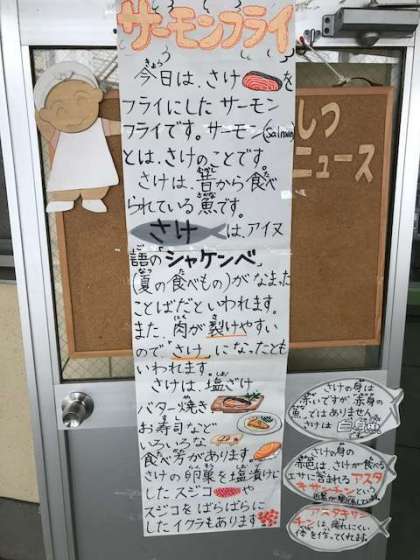 サーモンフライ
今日は、さけを
フライにした サーモン
フライです。サーモン(Salmon)
とは、さけのことです。
さけは、昔から食べ
られている魚です。
さけは、アイヌ
語の「シャケンベ」
(夏の食べもの)がなまった
ことばだといわれます。
また 肉が裂けやすい
ので「さけ」になったとも
いわれます。
さけは、塩ざけ
バター焼き
お寿司など
いろいろな
食べ方があります。
さけの卵巣を塩漬けに
したスジコや
スジコをばらばらに
したイクラもあります
しつ
ニュース
さけの身は
赤いですが赤身の
魚ではありません
さけは 白身
さけの身の
赤色は、さけが食べる
エサに含まれるアスタ
キサンチンという
アスタキサン
チンは、疲れにくい
体を作ってくれます。